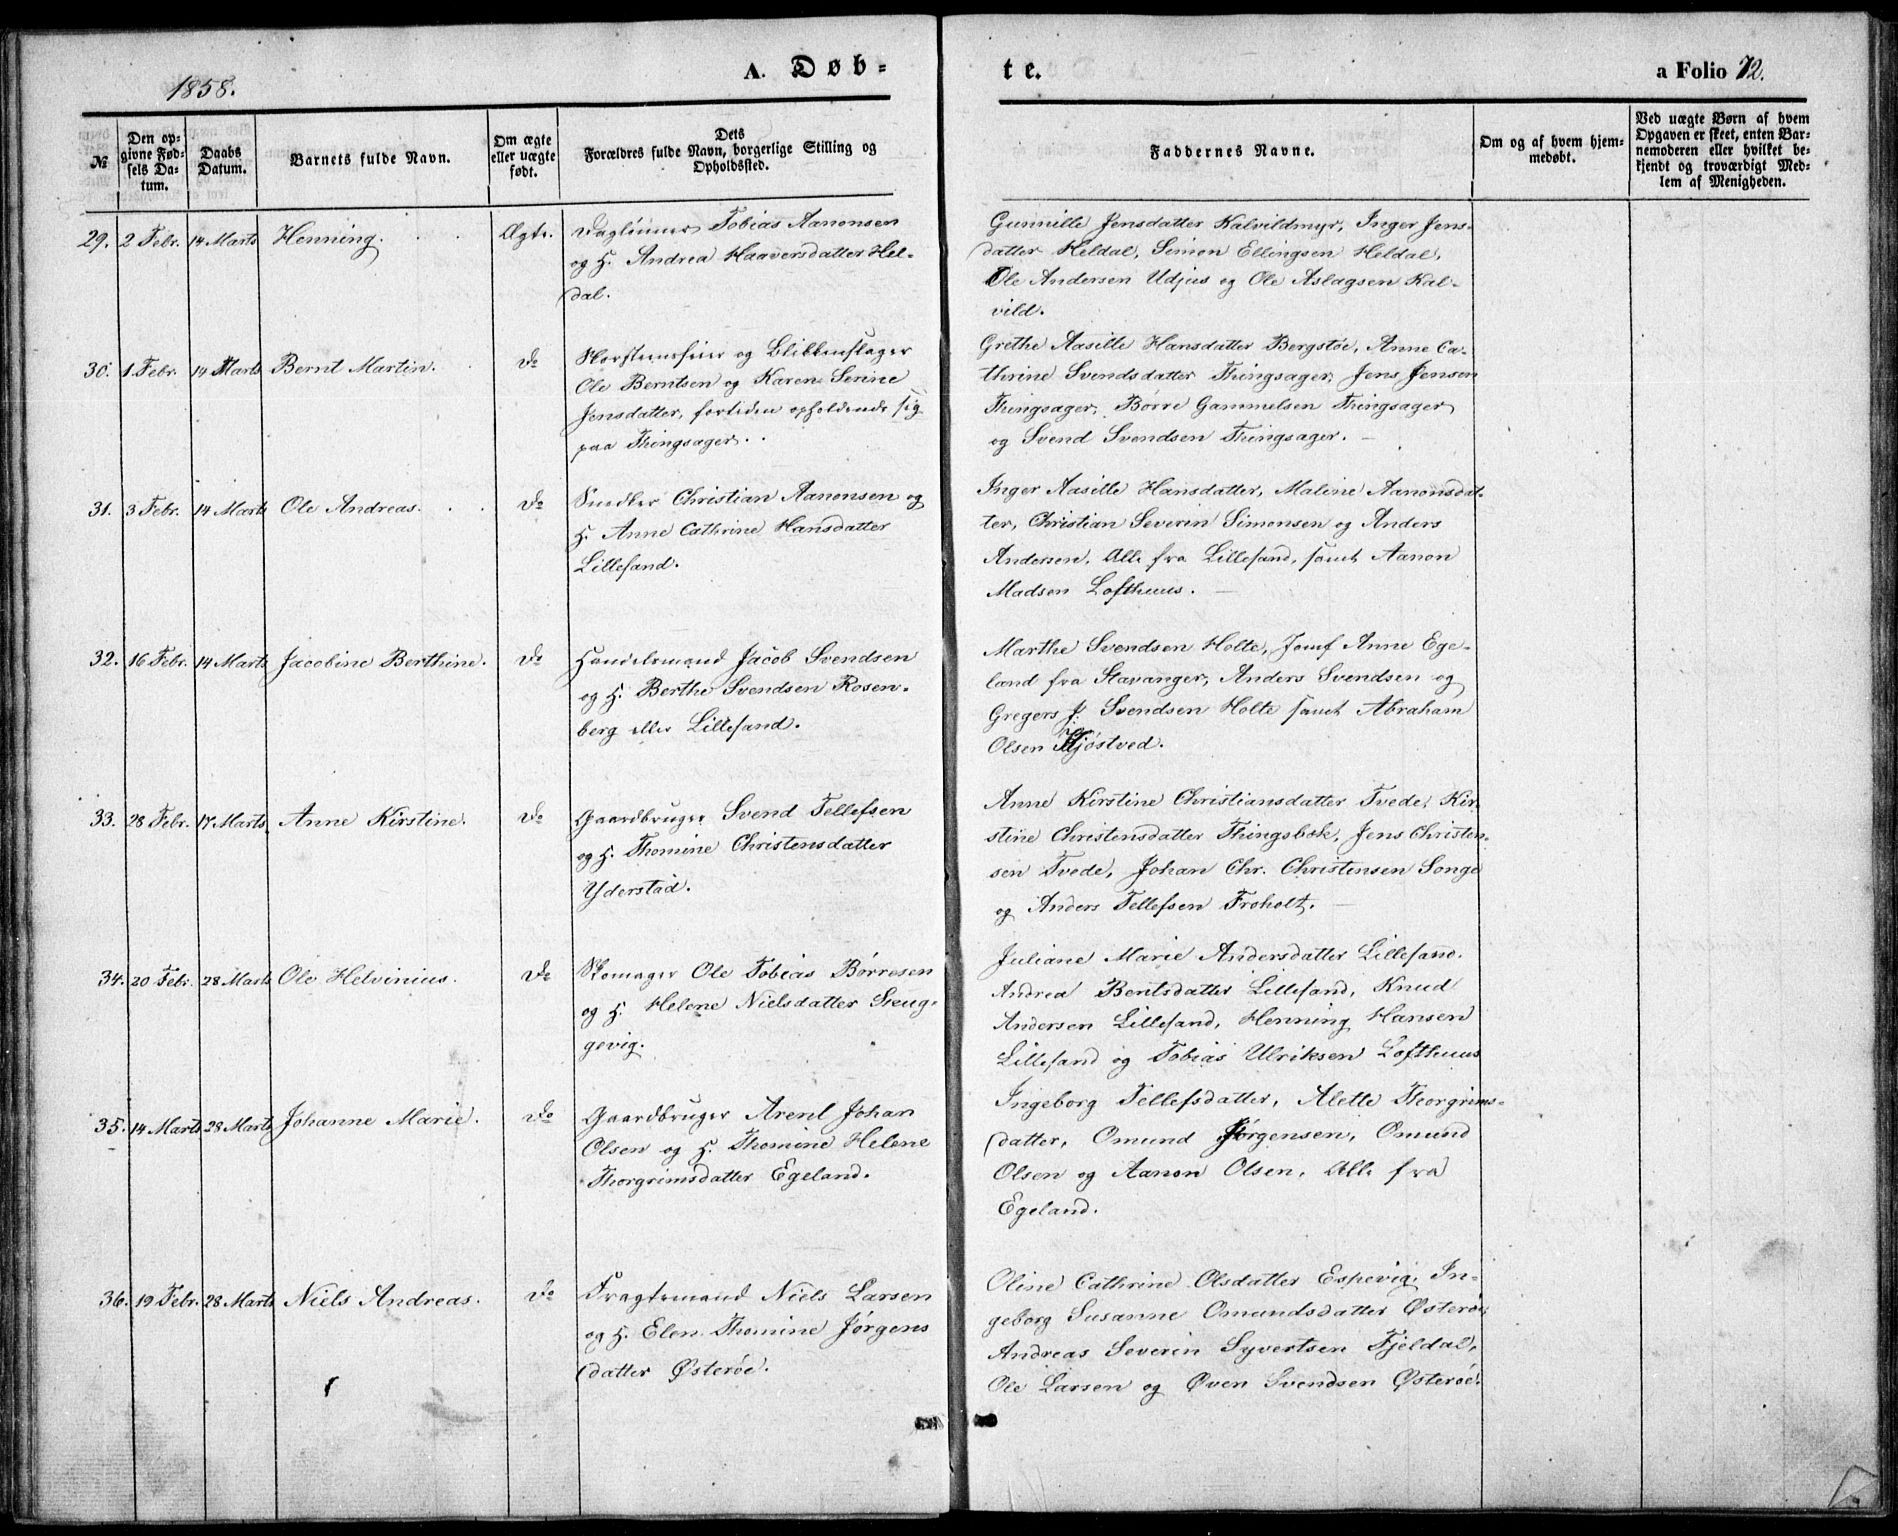 1858.
A. Døb-
te.
a Folio 72.
№
Den op-
givne Fød-
sels Da-
tum.
Daabs
Datum.
Barnets fulde Navn.
Om ægte
eller uægte
født.
Dets
Forældres fulde Navn, borgerlige Stilling og
Opholdssted.
Faddernes Navne.
Om og af hvem hjem-
medøbt.
Ved uægte Børn af hvem
Opgaven er skeet, enten Bar-
nemoderen eller hvilket be-
kjendt og troværdigt Med-
lem af Menigheden.
29. 2 Febr. 14 Marts Henning. Ægte.
Daglønner Tobias Aanonsen
og H. Andrea Haaversdatter Hel-
dal.
Gunnille Jensdatter Kalvildmyr, Inger Jens-
datter Heldal, Simon Ellingsen Heldal,
Ole Andersen Udjus og Ole Aslagsen Kal-
vild.
30. 1 Febr. 14 Marts Bernt Martin. Do
Skorsteensfeier og Blikkenslager
Ole Berntsen og Karen Serine
Jensdatter, fortiden opholdende sig
paa Thingsager.
Grethe Aasille Hansdatter Bergstøe, Anne Ca-
thrine Svendsdatter Thingsager, Jens Jensen
Thingsager, Børre Gammelsen Thingsager
og Svend Svendsen Thingsager.
31. 3 Febr. 14 Marts Ole Andreas. Do
Snedker Christian Aanonsen og
H. Anne Cathrine Hansdatter
Lillesand.
Inger Aasille Hansdatter, Maline Aanonsdat-
ter, Christian Severin Simonsen og Anders
Andersen, Alle fra Lillesand, samt Aanon
Madsen Lofthuus.
32. 16 Febr. 14 Marts Jacobine Berthine. Do
Handelsmand Jacob Svendsen
og H. Berthe Svendsen Rosen-
berg eller Lillesand.
Marthe Svendsen Holte, Jomf Anne Ege-
land fra Stavanger, Anders Svendsen og
Gregers J. Svendsen Holte samt Abraham
Olsen
33. 28 Febr. 17 Marts Anne Kirstine. Do
Gaardbruger Svend Tellefsen
og H. Thomine Christensdatter
Yderstad.
Anne Kirstine Christiansdatter Tvede, Kir-
stine Christensdatter Thingsbæk, Jens Christen-
sen Tvede, Johan Chr. Christensen Songe
og Anders Tellefsen Froholt.
34. 20 Febr. 28 Marts Ole Helvinius. Do
Skomager Ole Tobias Børresen
og H. Helene Nielsdatter Skug-
gevig.
Juliane Marie Andersdatter Lillesand.
Andrea Bentsdatter Lillesand, Knud
Andersen Lillesand, Henning Hansen
Lillesand og Tobias Ulriksen Lofthuus
35. 14 Marts 28 Marts Johanne Marie. Do
Gaardbruger Arent Johan
Olsen og H. Thomine Helene
Thorgrimsdatter Egeland.
Ingeborg Tellefsdatter, Alette Thorgrims-
datter, Omund Jørgensen, Omund
Olsen og Aanon Olsen, Alle fra
Egeland.
36. 19 Febr. 28 Marts Niels Andreas. Do
Fragtemand Niels Larsen
og H. Elen Thomine Jørgens
datter Østerøe.
Oline Cathrine Olsdatter Espevig, In-
geborg Susanne Omundsdatter Østerøe,
Andreas Severin Syvertsen Fjeldal,
Ole Larsen og Øven Svendsen Østerøe.